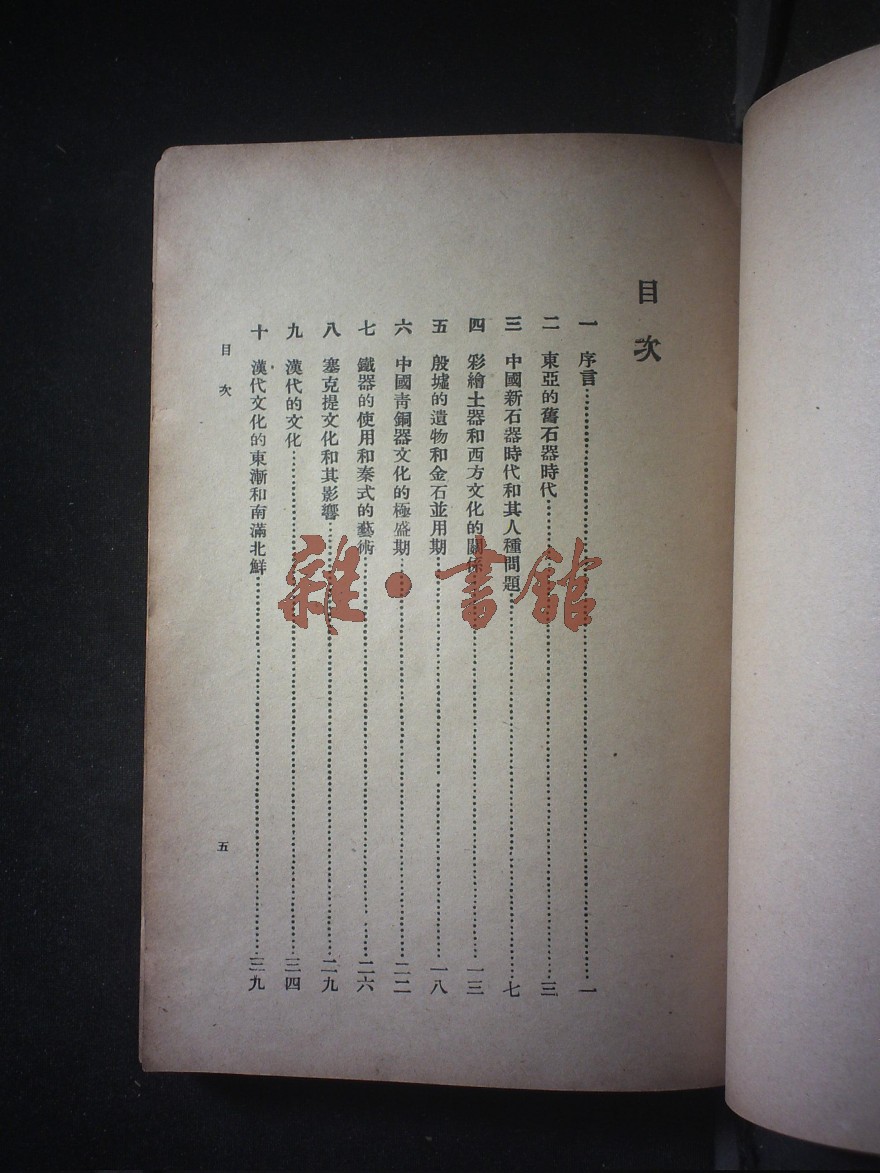 目次
一 序言………一
二 東亞的舊石器時代………三
三 中國新石器時代和其人種問題………七
四 彩繪土器和西方文化的關係………一三
五 殷墟的遺物和金石並用期………一八
六 中國青銅器文化的極盛期………二二
七 鐵器的使用和秦式的藝術………二六
八 塞克提文化和其影響………二九
九 漢代的文化………三四
十 漢代文化的東漸和南滿北鮮………三九
目次 五
雜·書館